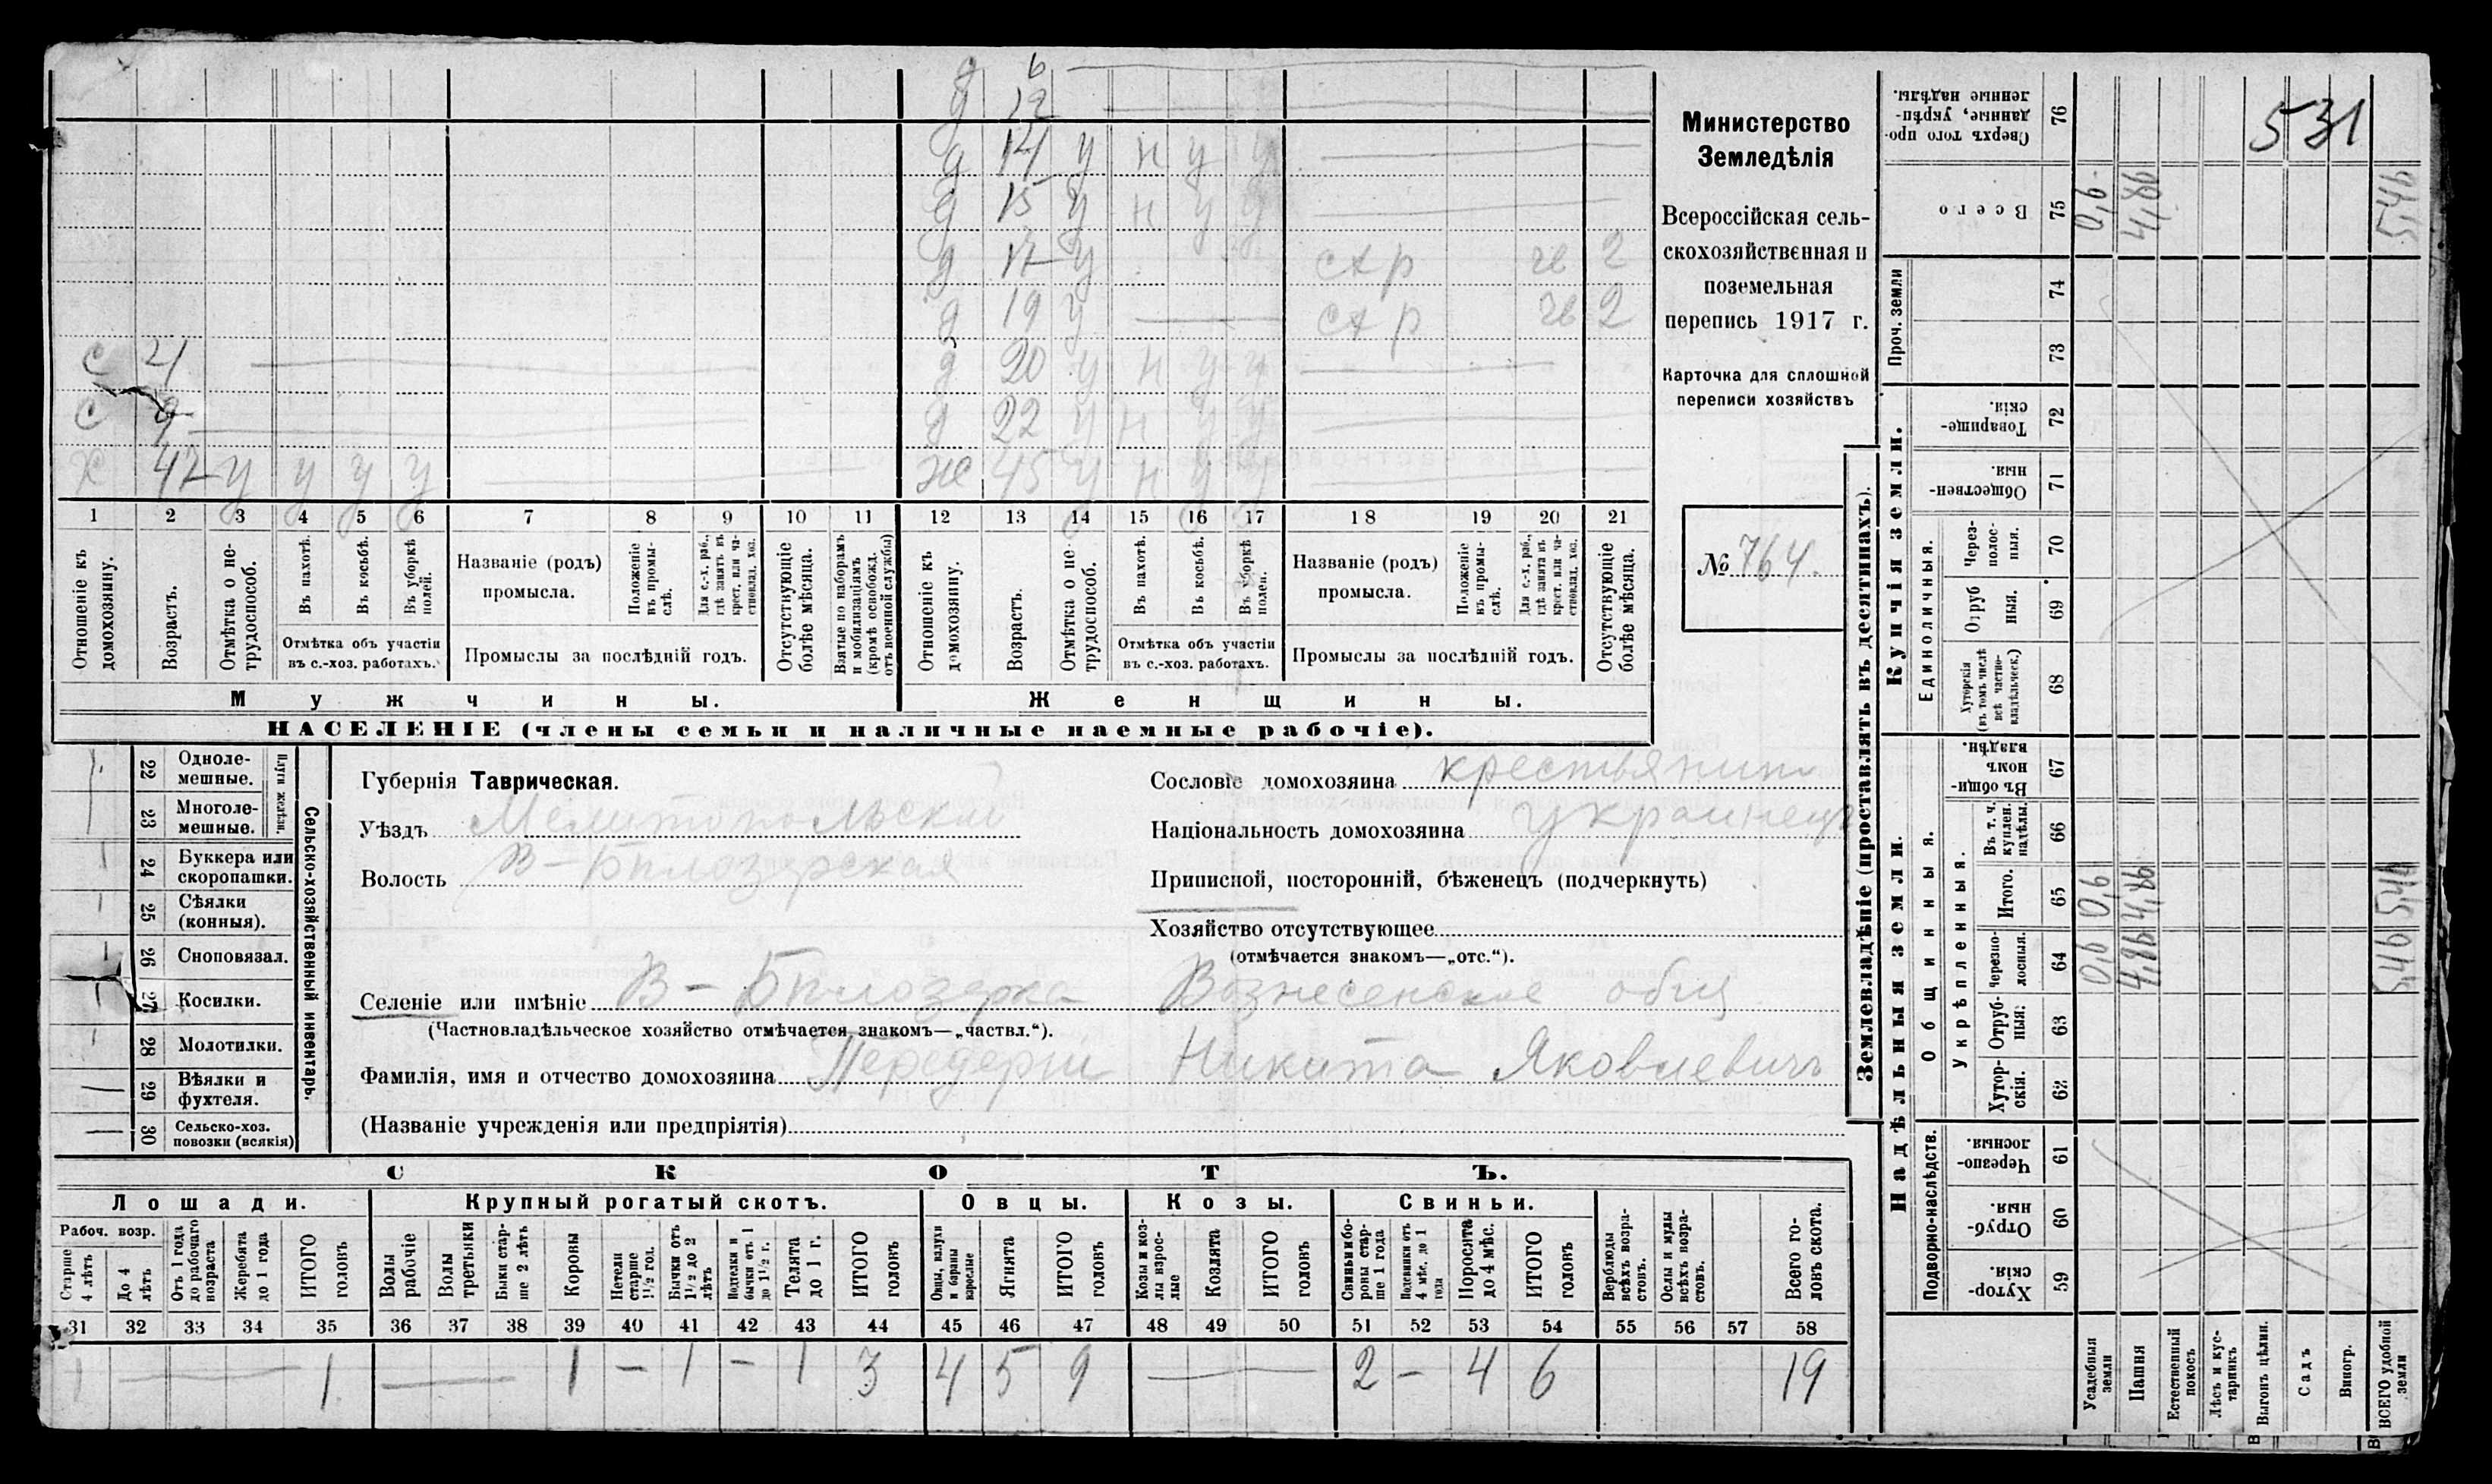 д 6
д 12
д 14 у н у у
д 15 у н у у
д 17 у схр чв 2
д 19 у схр чв 2
с 4 д 20 у н у у
с 9 д 22 у н у у
х 47 у у у у ж 45 у н у у
1 2 3 4 5 6 7 8 9 10 11 12 13 14 15 16 17 18 19 20 21
Отношеніе къ домохозяину.
Возрастъ.
Отмѣтка о нетрудоспособ.
Въ пахотѣ.
Въ косьбѣ.
Въ уборкѣ полей.
Отмѣтка объ участіи
въ с.-хоз. работахъ.
Названіе (родъ)
промысла.
Положеніе въ промыслѣ.
Для с.-х. раб., гдѣ занятъ въ крест. или частновлад. хоз.
Промыслы за послѣдній годъ.
Отсутствующіе болѣе мѣсяца.
Взятые по наборамъ и мобилизаціямъ (кромѣ освобожд. отъ военной службы)
Отношеніе къ домохозяину.
Возрастъ.
Отмѣтка о нетрудоспособ.
Въ пахотѣ.
Въ косьбѣ.
Въ уборкѣ полей.
Отмѣтка объ участіи
въ с.-хоз. работахъ.
Названіе (родъ)
промысла.
Положеніе въ промыслѣ.
Для с.-х. раб., гдѣ занята въ крест. или частновлад. хоз.
Промыслы за послѣдній годъ.
Отсутствующіе болѣе мѣсяца.
Мужчины. Женщины.
НАСЕЛЕНІЕ (члены семьи и наличные наемные рабочіе).
Министерство
Земледѣлія
Всероссійская сель-
скохозяйственная и
поземельная
перепись 1917 г.
Карточка для сплошной
переписи хозяйствъ
№ 764.
Сельско-хозяйственный инвентарь.
Плуги желѣзн.
22 Однолемешные.
23 Многолемешные.
24 Буккера или скоропашки.
25 Сѣялки (конныя).
26 Сноповязал.
27 Косилки.
28 Молотилки.
29 Вѣялки и фухтеля.
30 Сельско-хоз. повозки (всякія)
Губернія Таврическая.
Уѣздъ Мелитопольскій
Волость В-Бѣлозерская
Сословіе домохозяина крестьянин
Національность домохозяина украинецъ
Приписной, посторонній, бѣженецъ (подчеркнуть)
Хозяйство отсутствующее
(отмѣчается знакомъ—„отс.“).
Селеніе или имѣніе В-Бѣлозерка Вознесенское общ
(Частновладѣльческое хозяйство отмѣчается знакомъ—„частвл.“).
Фамилія, имя и отчество домохозяина Передерій Никита Яковлевичъ
(Названіе учрежденія или предпріятія)
СКОТЪ.
Лошади. Крупный рогатый скотъ. Овцы. Козы. Свиньи.
Рабоч. возр.
Старше 4 лѣтъ
До 4 лѣтъ
Отъ 1 года до рабочаго возраста
Жеребята до 1 года
ИТОГО головъ
Волы рабочіе
Волы третьяки
Быки старше 2 лѣтъ
Коровы
Нетели старше 1½ год.
Бычки отъ 1½ до 2 лѣтъ
Подтелки и бычки отъ 1 до 1½ г.
Телята до 1 г.
ИТОГО головъ
Овцы, валухи и бараны взрослые
Ягнята
ИТОГО головъ
Козы и козлы взрослые
Козлята
ИТОГО головъ
Свиньи и боровы старше 1 года
Подсвинки отъ 4 мѣс. до 1 года
Поросята до 4 мѣс.
ИТОГО головъ
Верблюды всѣхъ возрастовъ.
Ослы и мулы всѣхъ возрастовъ.
Всего головъ скота.
31 32 33 34 35 36 37 38 39 40 41 42 43 44 45 46 47 48 49 50 51 52 53 54 55 56 57 58
1 — 1 — 1 – 1 – 1 3 4 5 9 — 2 – 4 6 19
Землевладѣніе (проставлять въ десятинахъ).
Купчія земли.
Надѣльныя земли.
Сверхъ того проданные, укрѣпленные надѣлы. 76
Всего 75
Проч. земли 74 73
Товарищескія. 72
Общественныя. 71
Единоличныя.
Черезполосныя. 70
Отрубныя. 69
Хуторскія (въ томъ числѣ всѣ частновладѣльческ.) 68
Общинныя.
Въ общинномъ владѣн. 67
Укрѣпленныя.
Въ т. ч. куплен. надѣлы. 66
Итого. 65
Черезполосныя. 64
Отрубныя. 63
Хуторскія. 62
Подворно-наслѣдств.
Черезполосныя. 61
Отрубныя. 60
Хуторскія. 59
Усадебныя земли 0,6 0,6 0,6
Пашня 4,86 4,86 4,86
Естественный покосъ
Лѣсъ и кустарникъ
Выгонъ цѣлин.
Садъ
Виногр.
ВСЕГО удобной земли 5,46 5,46 5,46
531